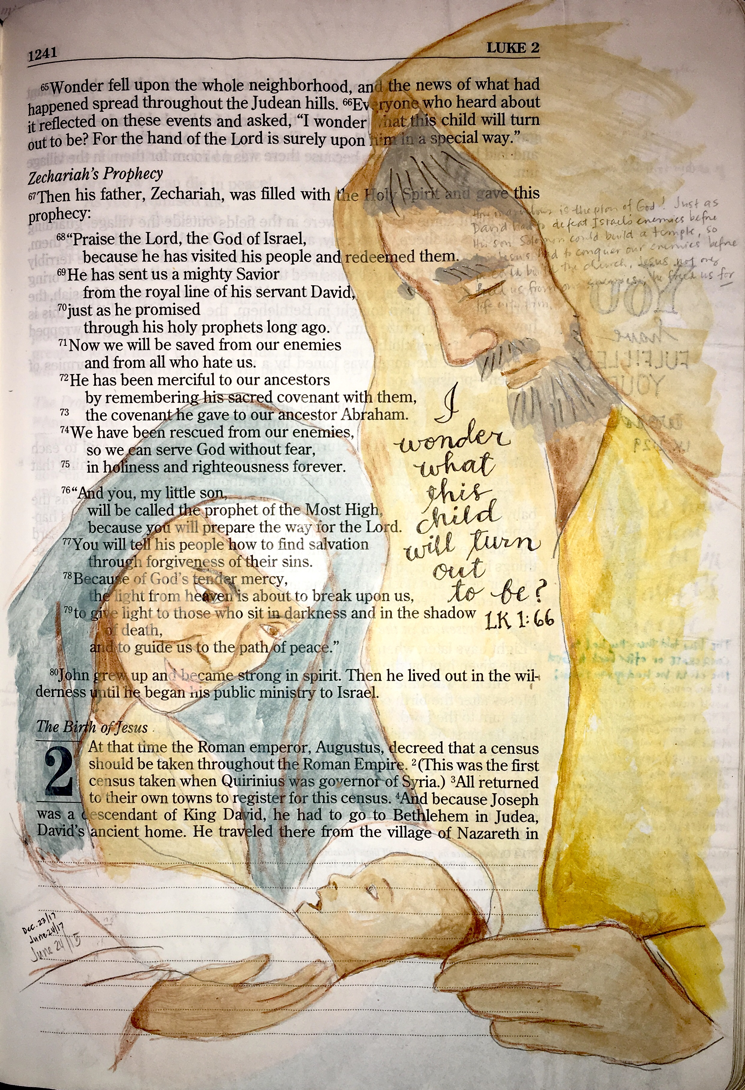 1241
LUKE 2
65Wonder fell upon the whole neighborhood, and the news of what had
happened spread throughout the Judean hills. 66Everyone who heard about
it reflected on these events and asked, “I wonder what this child will turn
out to be? For the hand of the Lord is surely upon him in a special way.”
Zechariah's Prophecy
67Then his father, Zechariah, was filled with the Holy Spirit and gave this
prophecy:
68“Praise the Lord, the God of Israel,
because he has visited his people and redeemed them.
69He has sent us a mighty Savior
from the royal line of his servant David,
70just as he promised
through his holy prophets long ago.
71Now we will be saved from our enemies
and from all who hate us.
72He has been merciful to our ancestors
by remembering his sacred covenant with them,
73 the covenant he gave to our ancestor Abraham.
74We have been rescued from our enemies,
so we can serve God without fear,
75 in holiness and righteousness forever.
76“And you, my little son,
will be called the prophet of the Most High,
because you will prepare the way for the Lord.
77You will tell his people how to find salvation
through forgiveness of their sins.
78Because of God's tender mercy,
the light from heaven is about to break upon us,
79to give light to those who sit in darkness and in the shadow
of death,
and to guide us to the path of peace.”
80John grew up and became strong in spirit. Then he lived out in the wil-
derness until he began his public ministry to Israel.
The Birth of Jesus
2 At that time the Roman emperor, Augustus, decreed that a census
should be taken throughout the Roman Empire. 2(This was the first
census taken when Quirinius was governor of Syria.) 3All returned
to their own towns to register for this census. 4And because Joseph
was a descendant of King David, he had to go to Bethlehem in Judea,
David's ancient home. He traveled there from the village of Nazareth in
is the plan of God! Just as
David defeat Israel's enemies before
his son Solomon could build a temple, so
Jesus had to conquer our enemies before
the church, Jesus not only
us from our
for
I
wonder
what
this
child
will turn
out
to be?
LK 1:66
Dec. 23/17
June 24/17
June 24/15